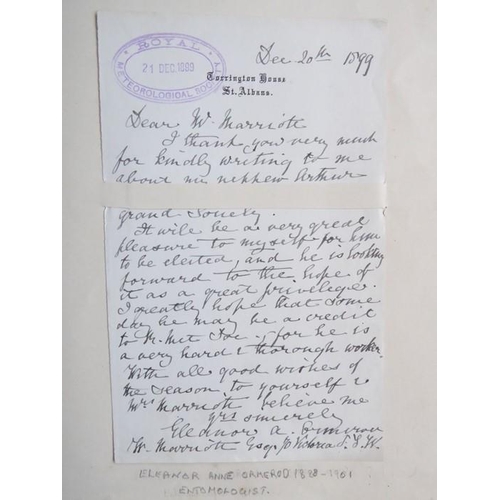 ROYAL METEOROLOGICAL SOCIETY
21 DEC. 1899
Dec 20th 1899
Torrington House
St. Albans.
Dear Mr Marriott
I thank you very much
for kindly writing to me
about my nephew Arthur
grand Society.
It will be a very great
pleasure to myself for him
to be elected, and he is looking
forward to the hope of
it as a great privilege.
I greatly hope that some
day he may be a credit
to R. Met Soc - for he is
a very hard & thorough worker.
With all good wishes of
the season to yourself &
Mrs Marriott believe me
yrs sincerely
Eleanor A. Ormerod
W. Marriott Esq. 70 Victoria St. S.W.
ELEANOR ANNE ORMEROD 1828-1901
ENTOMOLOGIST.